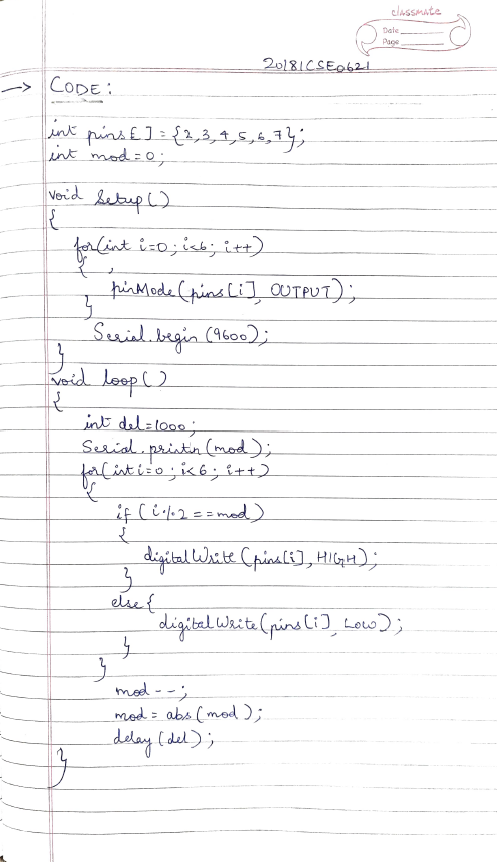 classmate
Date
Page
20181CSE0621
→ CODE:
int pins[] = {2,3,4,5,6,7};
int mod=0;
void Setup()
{
for(int i=0; i<6; i++)
{
pinMode(pins[i], OUTPUT);
}
Serial.begin(9600);
}
void loop()
{
int del=1000;
Serial.println(mod);
for(int i=0; i<6; i++)
{
if (i%2==mod)
{
digitalWrite(pins[i], HIGH);
}
else{
digitalWrite(pins[i], LOW);
}
}
mod--;
mod = abs(mod);
delay(del);
}